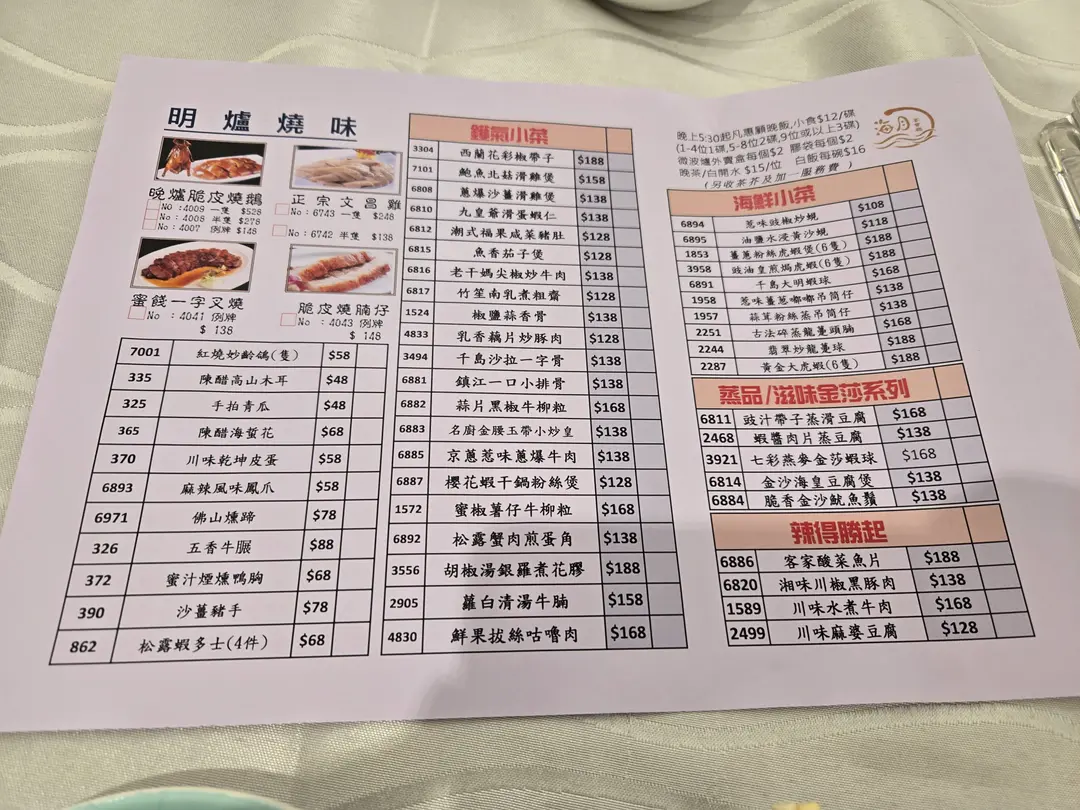 明爐燒味
晚爐脆皮燒鵝
No :4009 一隻 $528
No :4008 半隻 $278
No :4007 例牌 $148
正宗文昌雞
No :6743 一隻 $248
No :6742 半隻 $138
蜜餞一字叉燒
No :4041 例牌
$ 138
脆皮燒腩仔
No :4043 例牌
$ 148
7001 紅燒妙齡鴿(隻) $58
335 陳醋高山木耳 $48
325 手拍青瓜 $48
365 陳醋海蜇花 $68
370 川味乾坤皮蛋 $58
6893 麻辣風味鳳爪 $58
6971 佛山燻蹄 $78
326 五香牛𦟌 $88
372 蜜汁煙燻鴨胸 $68
390 沙薑豬手 $78
862 松露蝦多士(4件) $68
鑊氣小菜
3304 西蘭花彩椒帶子 $188
7101 鮑魚北菇滑雞煲 $158
6808 蔥爆沙薑滑雞煲 $138
6810 九皇爺滑蛋蝦仁 $138
6812 潮式福果咸菜豬肚 $128
6815 魚香茄子煲 $128
6816 老干媽尖椒炒牛肉 $138
6817 竹笙南乳煮粗齋 $128
1524 椒鹽蒜香骨 $138
4833 乳香藕片炒豚肉 $128
3494 千島沙拉一字骨 $138
6881 鎮江一口小排骨 $138
6882 蒜片黑椒牛柳粒 $168
6883 名廚金腰玉帶小炒皇 $138
6885 京蔥惹味蔥爆牛肉 $138
6887 櫻花蝦干鍋粉絲煲 $128
1572 蜜椒薯仔牛柳粒 $168
6892 松露蟹肉煎蛋角 $138
3556 胡椒湯銀羅煮花膠 $188
2905 蘿白清湯牛腩 $158
4830 鮮果拔絲咕嚕肉 $168
晚上5:30起凡惠顧晚飯,小食$12/碟
(1-4位1碟,5-8位2碟,9位或以上3碟)
微波爐外賣盒每個$2 膠袋每個$2
晚茶/白開水 $15/位 白飯每碗$16
(另收茶芥及加一服務費 )
海月
海鮮小菜
6894 惹味豉椒炒蜆 $108
6895 油鹽水浸黃沙蜆 $118
1853 薑蔥粉絲虎蝦煲(6隻) $188
3958 豉油皇煎焗虎蝦(6隻) $188
6891 千島大明蝦球 $168
1958 惹味薑蔥啷啷吊筒仔 $138
1957 蒜茸粉絲蒸吊筒仔 $138
2251 古法碎蒸龍躉頭腩 $168
2244 翡翠炒龍躉球 $188
2287 黃金大虎蝦(6隻) $188
蒸品/滋味金莎系列
6811 豉汁帶子蒸滑豆腐 $168
2468 蝦醬肉片蒸豆腐 $138
3921 七彩燕麥金莎蝦球 $168
6814 金沙海皇豆腐煲 $138
6884 脆香金沙魷魚鬚 $138
辣得勝起
6886 客家酸菜魚片 $188
6820 湘味川椒黑豚肉 $138
1589 川味水煮牛肉 $168
2499 川味麻婆豆腐 $128